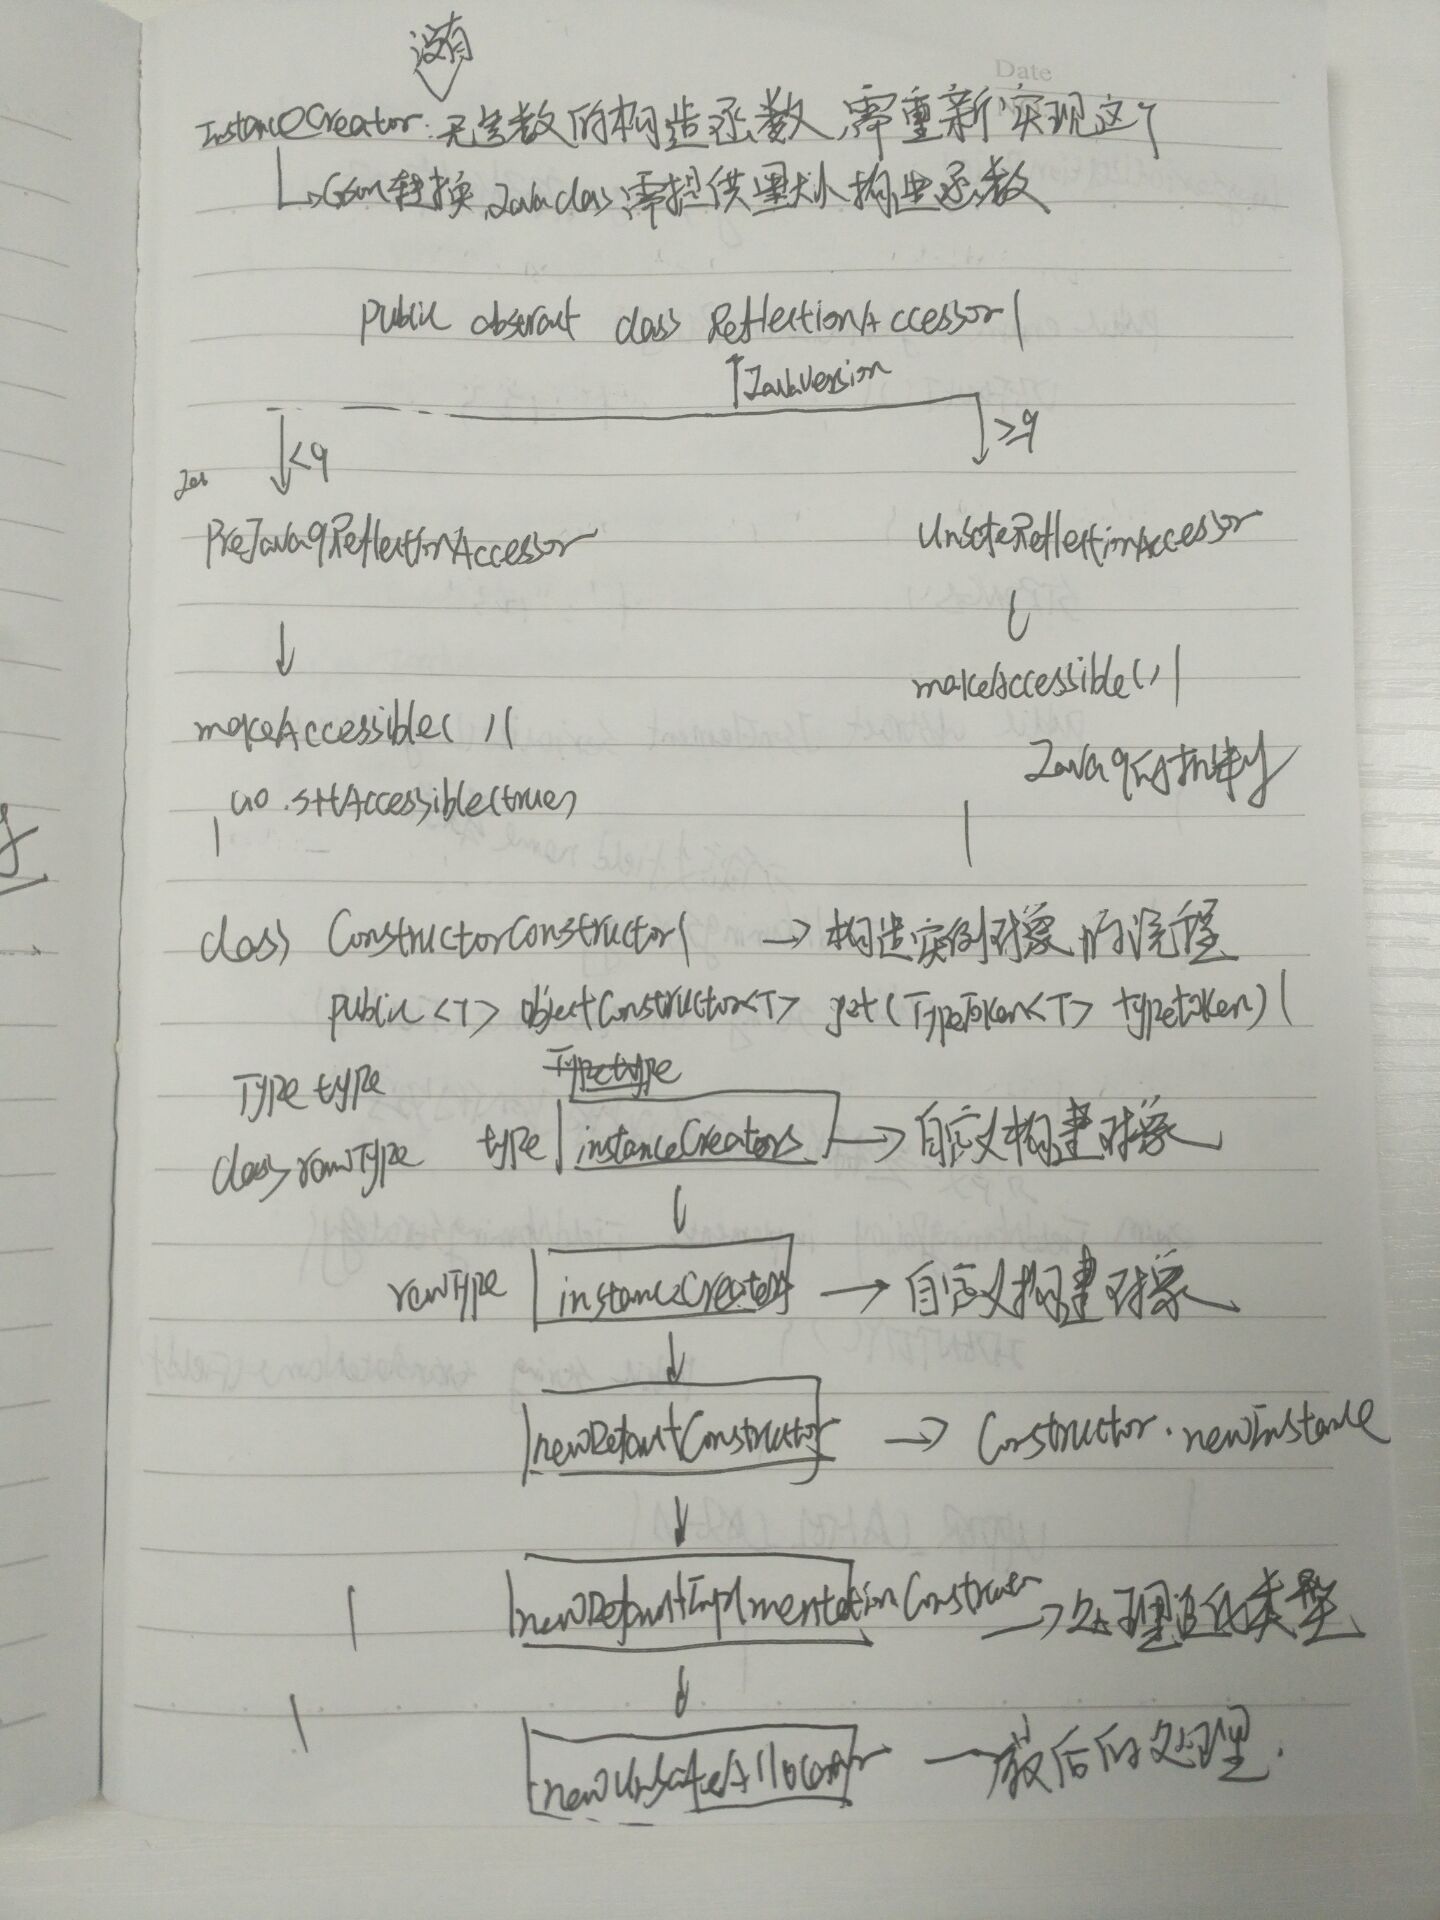 没有
Date
InstanceCreator: 无参数的构造函数,需重新实现这个
Gson转换,Java class需提供默认构造函数
public abstract class ReflectionAccessor{
JavaVersion
<9
≥9
PreJava9ReflectionAccessor
UnsafeReflectionAccessor
makeAccessible( ){
makeAccessible(){
ao.setAccessible(true)
Java9
}
}
class ConstructorConstructor{ → 构造实例对象的流程
public <T> ObjectConstructor<T> get(TypeToken<T> typetoken){
Type type
Type type
class rawType
type instanceCreators → 自定义构建对象
rawType instanceCreators → 自定义构建对象
newDefaultConstructor → Constructor.newInstance
newDefaultImplmentationConstructor → 处理泛化类型
}
newUnsafeAllocator 最后的处理.
}